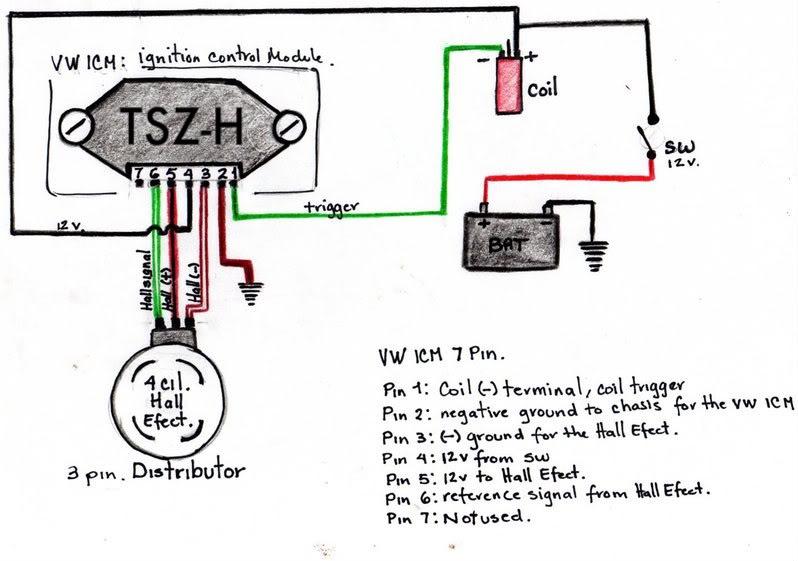 VW ICM: ignition control Module.
TSZ-H
7 6 5 4 3 2 1
- +
Coil
SW
12 v.
trigger
12 v.
+ -
BAT
Hall signal
Hall (+)
Hall (-)
4 cil.
Hall
Efect.
3 pin. Distributor
VW ICM 7 Pin.
Pin 1: Coil (-) terminal, coil trigger
Pin 2: negative ground to chasis for the VW ICM
Pin 3: (-) ground for the Hall Efect.
Pin 4: 12v from SW
Pin 5: 12v to Hall Efect.
Pin 6: reference signal from Hall Efect.
Pin 7: Not used.